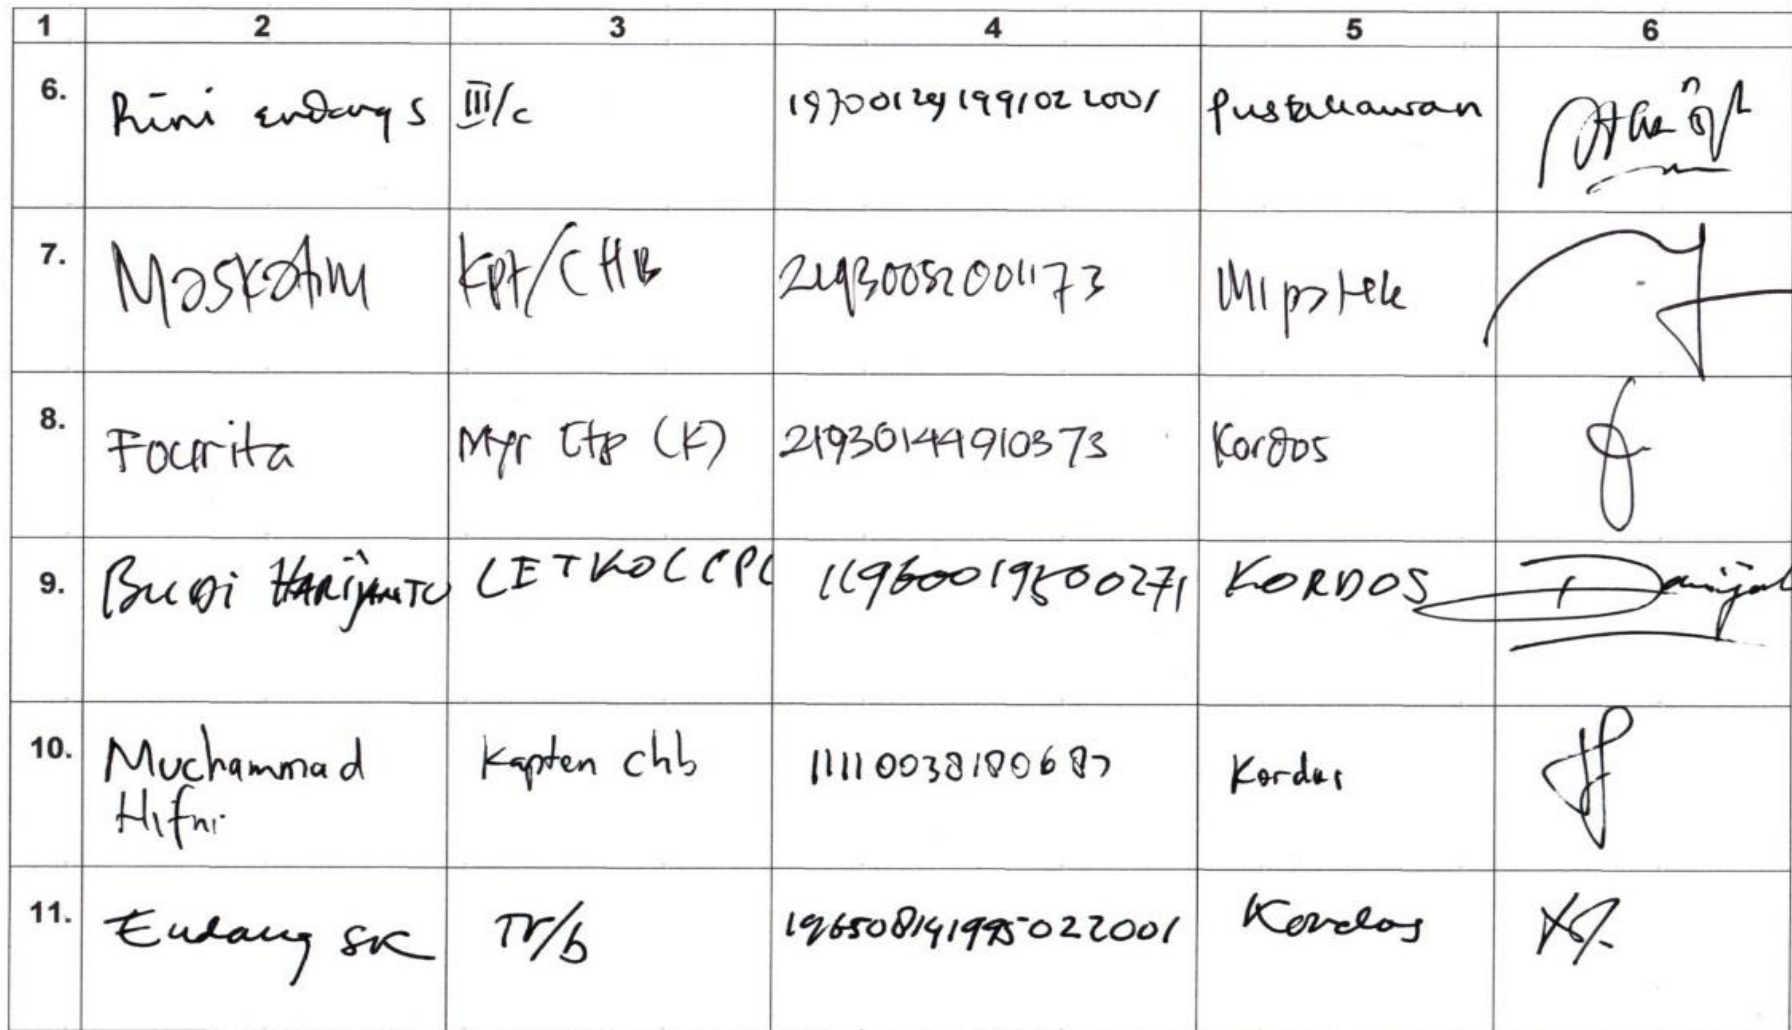 1 2 3 4 5 6
6. Rini endang S III/c 197001291991022001 Pustakawan
7. Maskatim Kpt/CHB Kordos
8. Fourita Myr Ctp (K) 21930144910373 Kordos
9. Budi HARIJANTO LETKOL CPL 11960019500271 KORDOS
10. Muchammad Kapten Chb 11110038180687 Kordos
Hifni
11. Endang SK IV/b 196508141995022001 Kordos